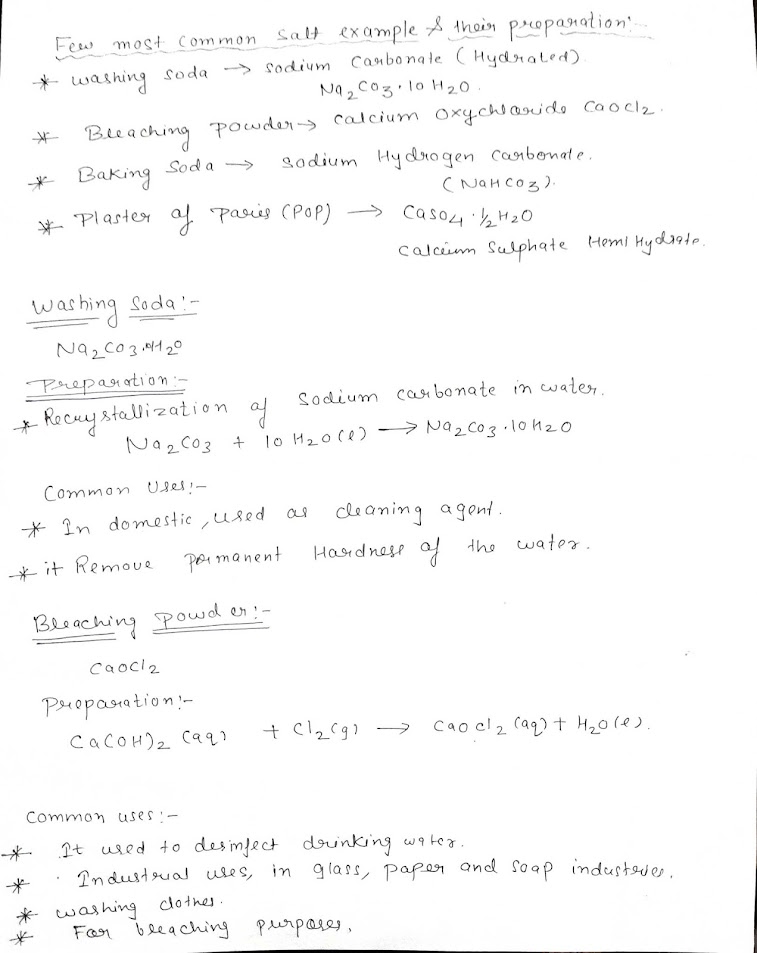 Few most common salt example & their preparation:-
* washing soda → sodium Carbonate (Hydrated)
Na₂CO₃·10H₂O.
* Bleaching powder → calcium oxychloride CaOCl₂.
* Baking soda → sodium Hydrogen Carbonate.
(NaHCO₃).
* Plaster of Paris (POP) → CaSO₄·½H₂O
Calcium Sulphate Hemi Hydrate.
Washing Soda:-
Na₂CO₃.10H₂O
Preparation:-
* Recrystallization of sodium carbonate in water.
Na₂CO₃ + 10 H₂O(l) → Na₂CO₃·10H₂O
Common Uses:-
* In domestic, used as cleaning agent.
* it Remove permanent Hardness of the water.
Bleaching Powder:-
CaOCl₂
Preparation:-
Ca(OH)₂ (aq) + Cl₂(g) → CaOCl₂ (aq) + H₂O(l).
Common uses:-
* It used to desinfect drinking water.
* Industrial uses, in glass, paper and soap industries.
* washing clothes.
* For bleaching purposes.